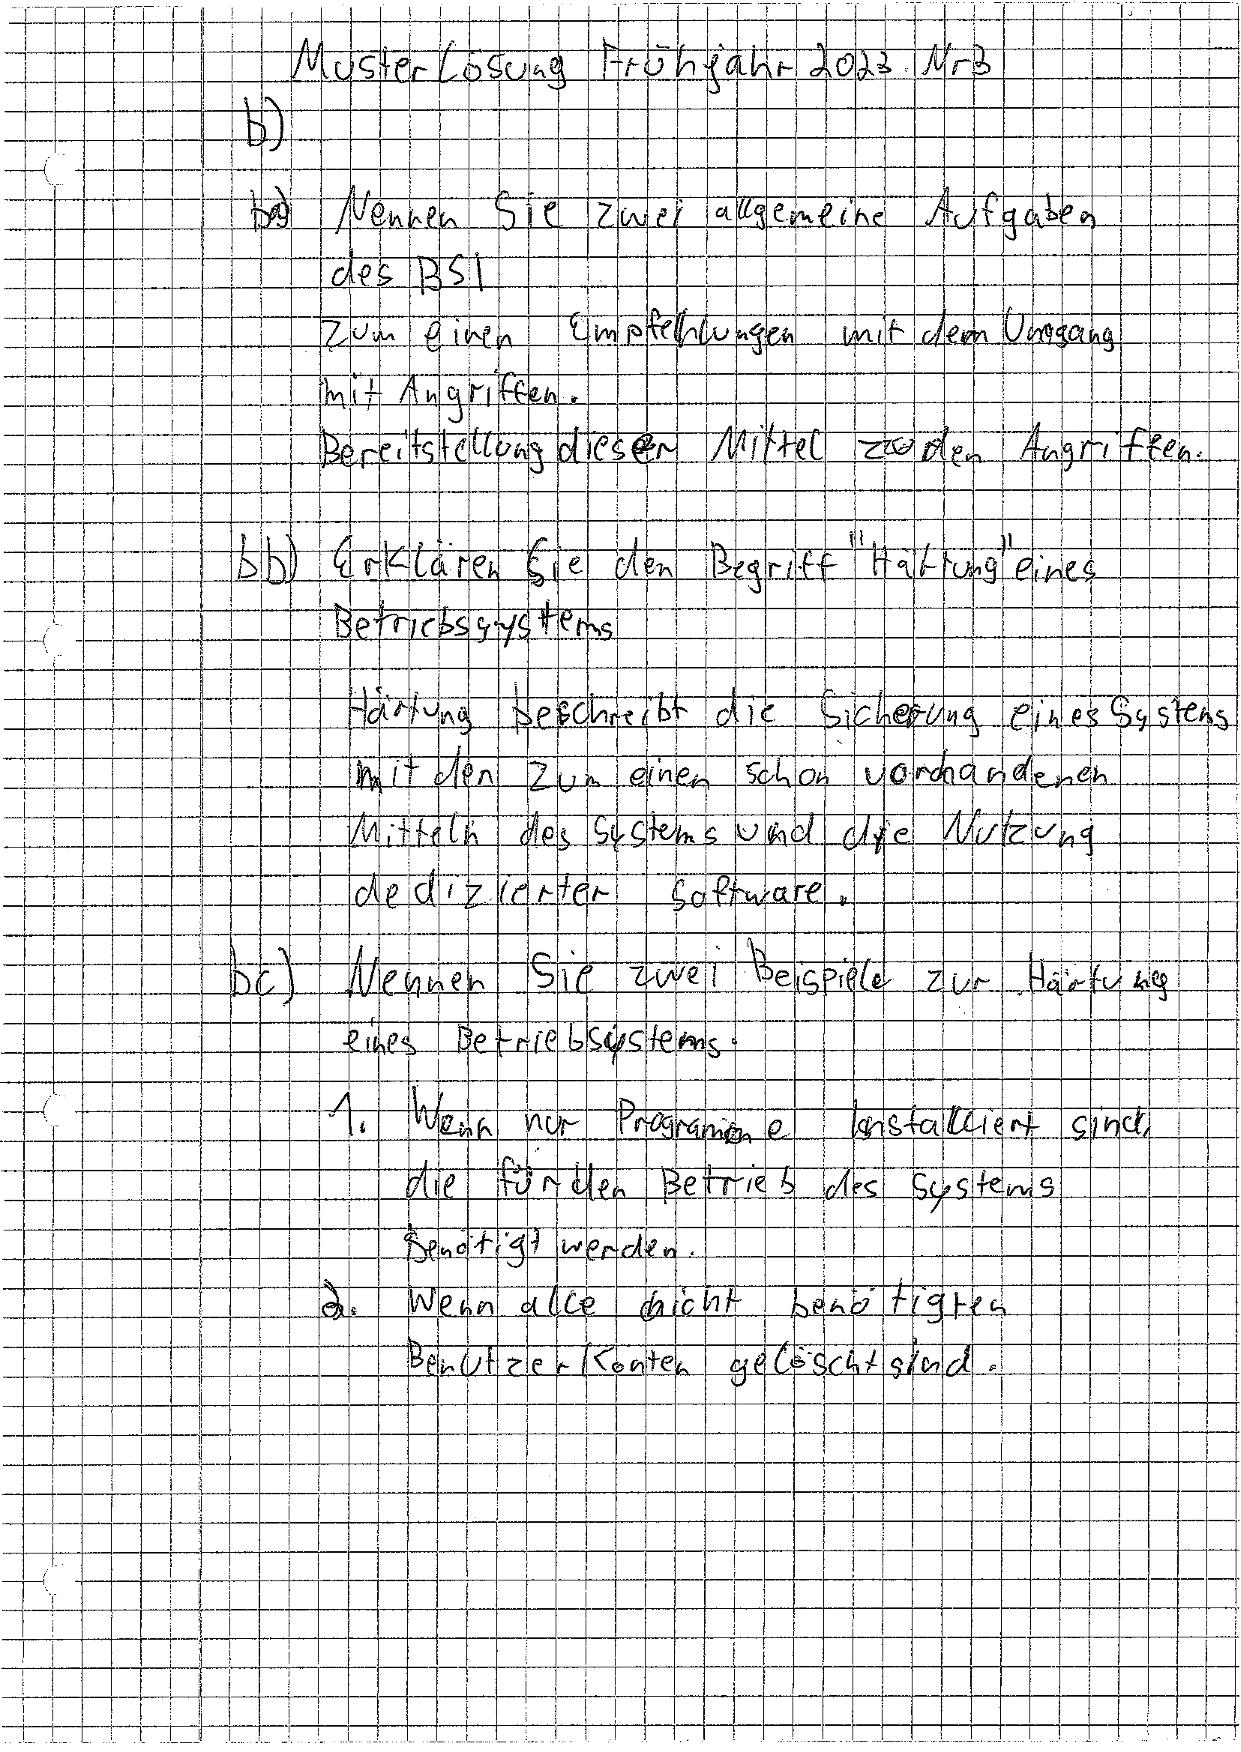 Musterlösung Frühjahr 2023 Nr3
b)
ba) Nennen Sie zwei allgemeine Aufgaben
des BSI
Zum einen Empfehlungen mit dem Umgang
mit Angriffen.
Bereitstellung dieser Mittel zu den Angriffen.
bb) Erklären Sie den Begriff "Härtung" eines
Betriebssystems
Härtung beschreibt die Sicherung eines Systems
mit den zum einen schon vorhandenen
Mitteln des Systems und die Nutzung
dedizierter Software.
bc) Nennen Sie zwei Beispiele zur Härtung
eines Betriebsystems.
1. Wenn nur Programme installiert sind,
die für den Betrieb des Systems
Benötigt werden.
2. Wenn alle nicht benötigten
Benutzerkonten gelöscht sind.